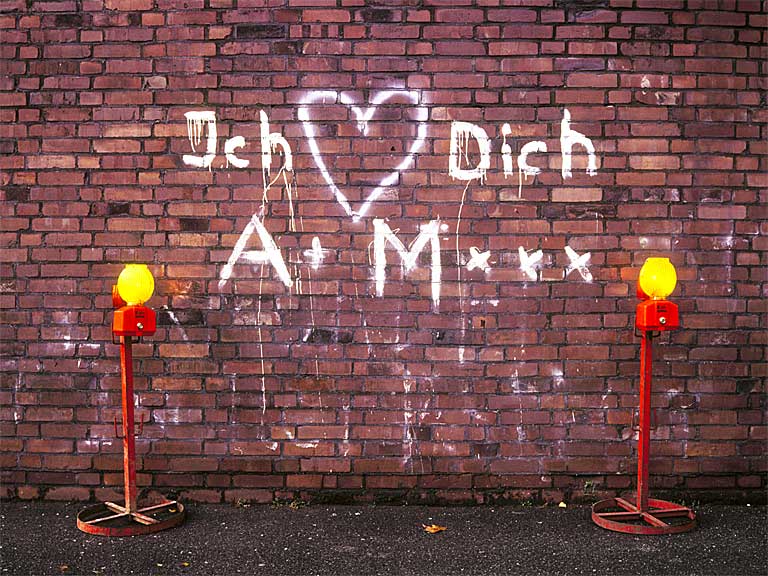 Ich ♥ Dich
A + M x x x